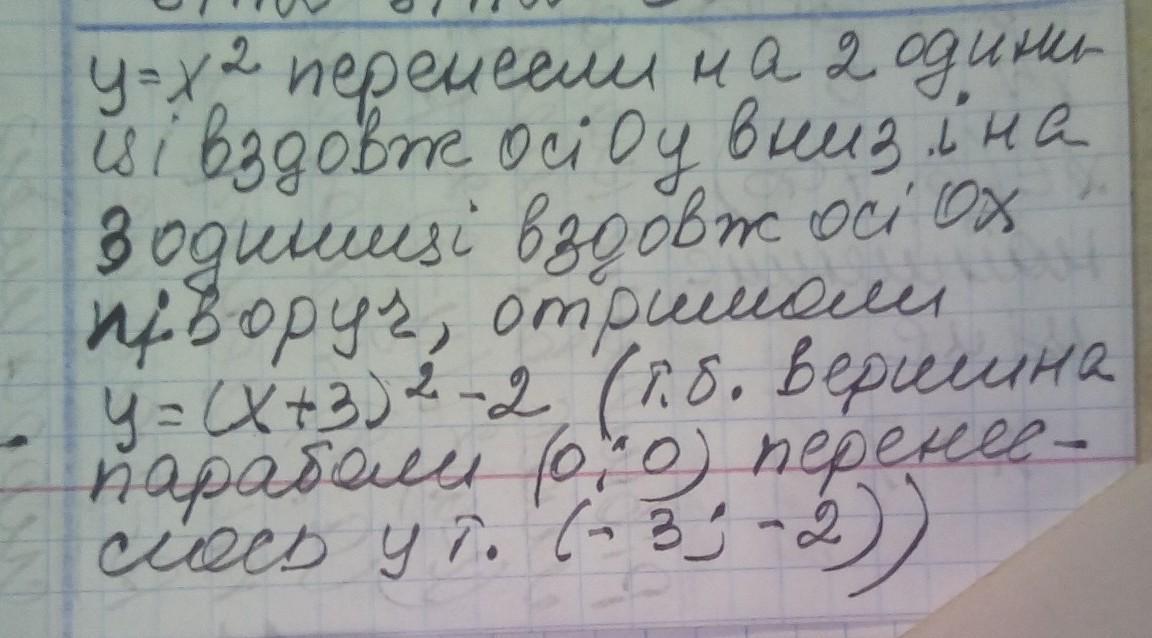 y=x² перенесли на 2 одини-
ці вздовж осі Oy вниз і на
3 одиниці вздовж осі Ox
ліворуч, отримали
y=(x+3)²-2 (т.б. вершина
параболи (0;0) перенес-
лась у т. (-3;-2))